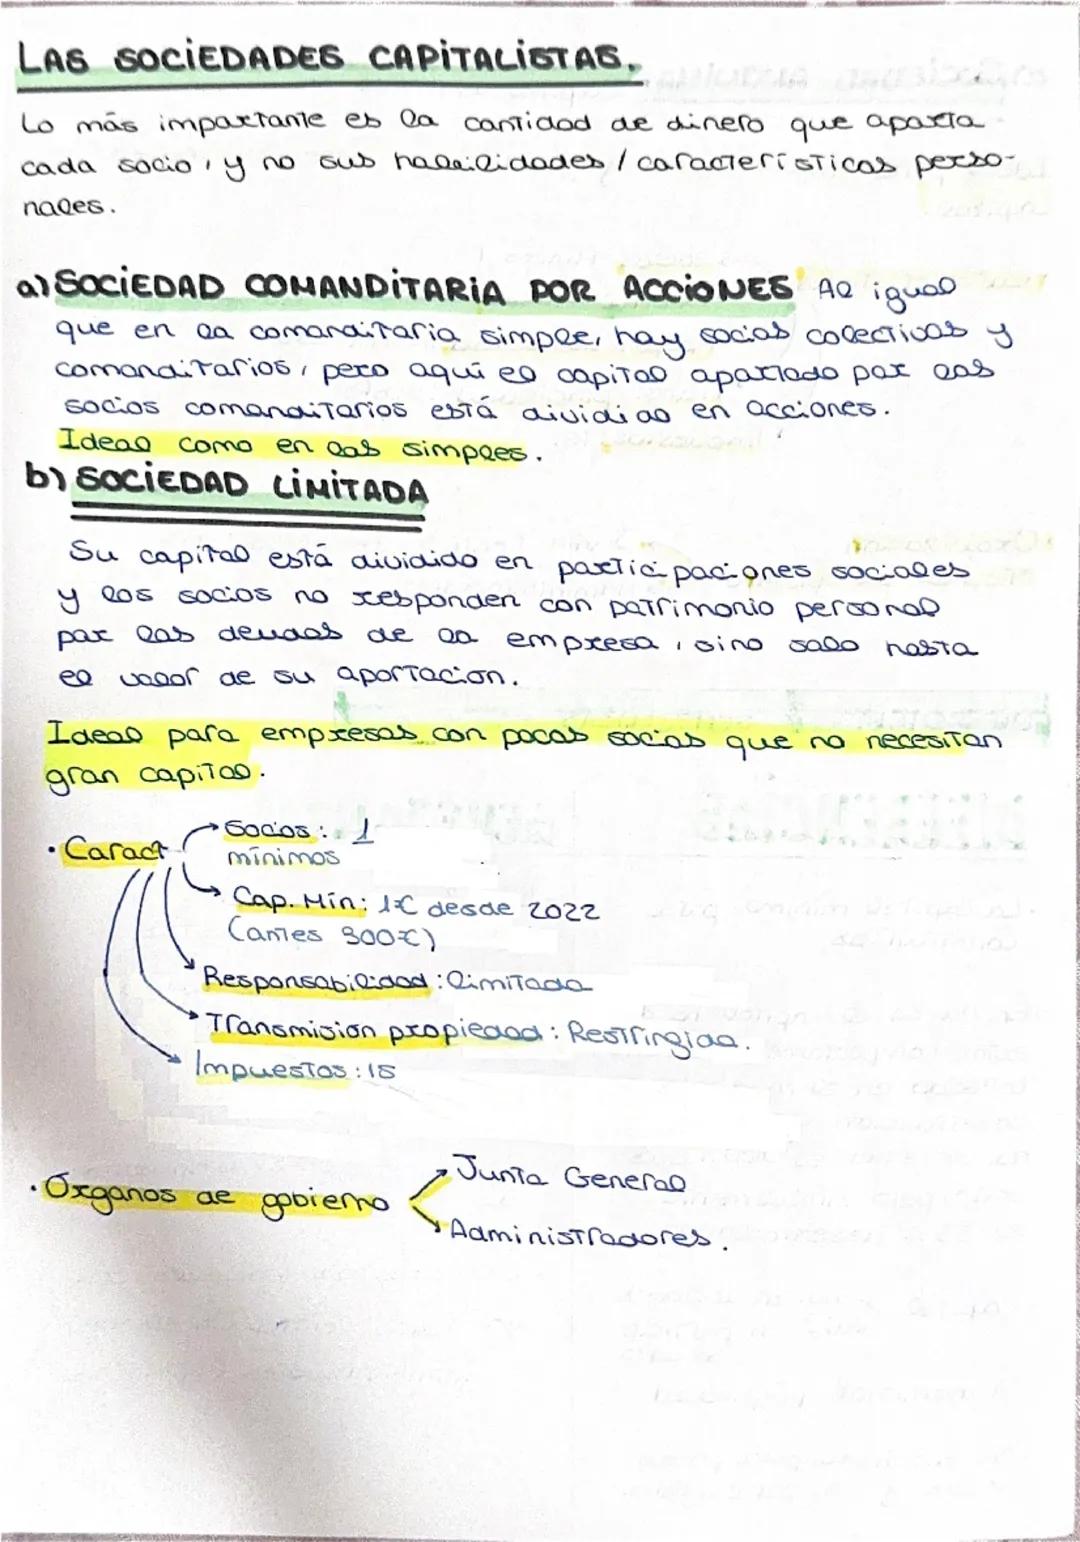 LAS SOCIEDADES CAPITALISTAS.
Lo más importante es la cantidad de dinero que aporta
cada socio, y no sus habilidades / características perso-
nales.
a) SOCIEDAD COMANDITARIA POR ACCIONES Al igual
que en la comanditaria simple, hay socios colectivos y
comanditarios, pero aquí el capital aportado por los
socios comanditarios está dividido en acciones.
Ideal como en las simples.
b) SOCIEDAD LIMITADA
Su capital está dividido en participaciones sociales
y los socios no responden con patrimonio personal
por las deudas de la empresa, sino solo hasta
el valor de su aportacion.
Ideal para empresas con pocos socios que no necesitan
gran capital.
· Caract
Socios: 1
mínimos
Cap. Mín: 1€ desde 2022
(antes 300€)
Responsabilidad: limitada
Transmision propiedad: Restringida.
Impuestos: IS
· Órganos de gobierno
Junta General
Administradores.